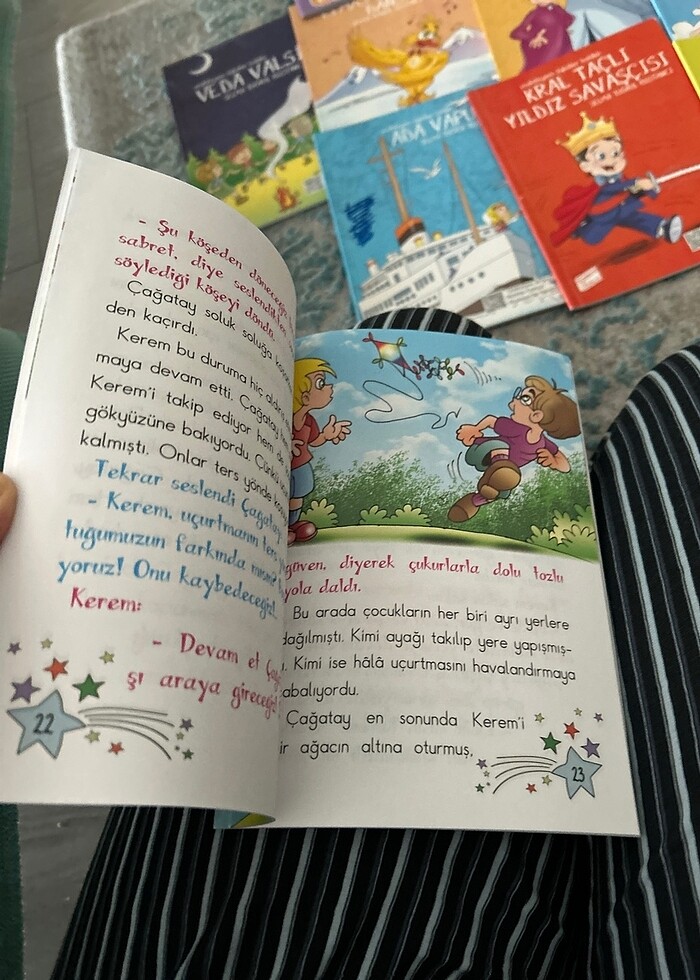 VEDA VALSİ
ADA VAPURU
KRAL TAÇLI
YILDIZ SAVAŞÇISI
- Şu köşeden döneceğiz,
sabret, diye seslendikten
söylediği köşeyi döndü.
Çağatay soluk soluğa
den kaçırdı.
Kerem bu duruma hiç
maya devam etti. Çağatay
Kerem'i takip ediyor hem de
gökyüzüne bakıyordu. Çünkü
kalmıştı. Onlar ters yönde
Tekrar seslendi Çağatay
- Kerem, uçurtmanın ters
tuğumuzun farkında mısın?
yoruz! Onu kaybedeceğiz!
Kerem:
- Devam et
şı araya gireceğiz!
22
güven, diyerek çukurlarla dolu tozlu
yola daldı.
Bu arada çocukların her biri ayrı yerlere
dağılmıştı. Kimi ayağı takılıp yere yapışmış-
ı. Kimi ise hâlâ uçurtmasını havalandırmaya
çabalıyordu.
Çağatay en sonunda Kerem'i
ir ağacın altına oturmuş,
23